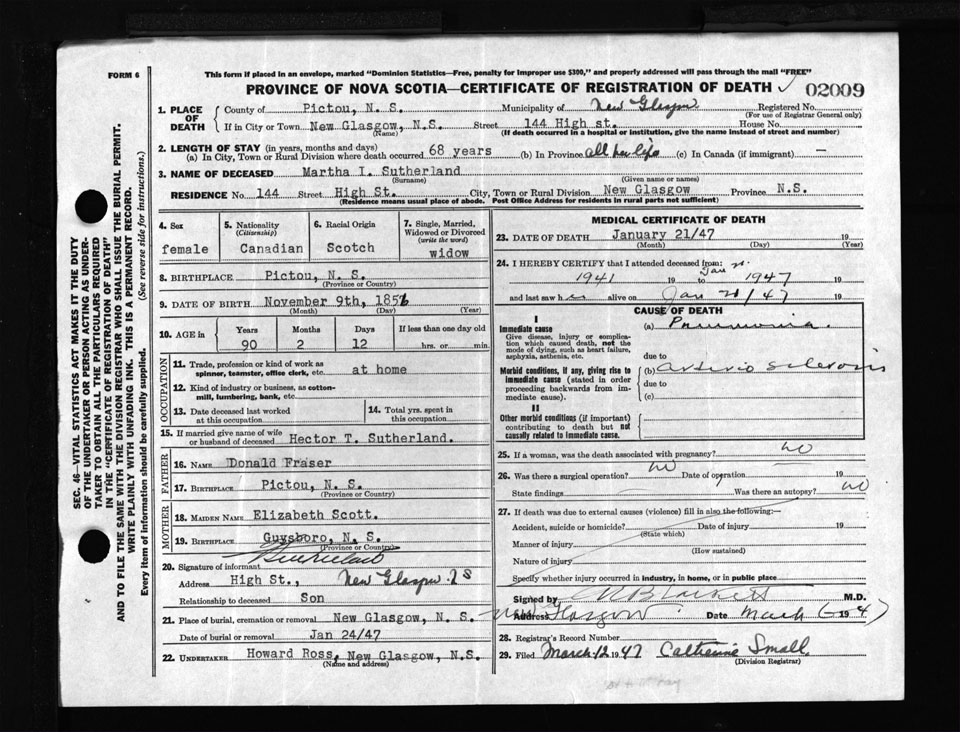 FORM 6
This form if placed in an envelope, marked "Dominion Statistics—Free, penalty for improper use $300," and properly addressed will pass through the mail "FREE"
PROVINCE OF NOVA SCOTIA—CERTIFICATE OF REGISTRATION OF DEATH ✓ 02009
1. PLACE OF DEATH
County of Pictou, N. S. Municipality of New Glasgow Registered No.
(For use of Registrar General only)
If in City or Town New Glasgow, N.S. Street 144 High st. House No.
(Name) (If death occurred in a hospital or institution, give the name instead of street and number)
2. LENGTH OF STAY (in years, months and days)
(a) In City, Town or Rural Division where death occurred 68 years (b) In Province all her life (c) In Canada (if immigrant) —
3. NAME OF DECEASED Martha I. Sutherland
(Surname) (Given name or names)
RESIDENCE No. 144 Street High St. City, Town or Rural Division New Glasgow Province N.S.
(Residence means usual place of abode. Post Office Address for residents in rural parts not sufficient)
4. Sex
female
5. Nationality
(Citizenship)
Canadian
6. Racial Origin
Scotch
7. Single, Married, Widowed or Divorced
(write the word)
widow
8. BIRTHPLACE Pictou, N. S.
(Province or Country)
9. DATE OF BIRTH November 9th, 1856
(Month) (Day) (Year)
10. AGE in Years Months Days If less than one day old
90 2 12 hrs. or min.
OCCUPATION
11. Trade, profession or kind of work as
spinner, teamster, office clerk, etc. at home
12. Kind of industry or business, as cotton-
mill, lumbering, bank, etc.
13. Date deceased last worked
at this occupation
14. Total yrs. spent in
this occupation
15. If married give name of wife
or husband of deceased Hector T. Sutherland.
FATHER
16. NAME Donald Fraser
17. BIRTHPLACE Pictou, N. S.
(Province or Country)
MOTHER
18. MAIDEN NAME Elizabeth Scott.
19. BIRTHPLACE Guysboro, N. S.
(Province or Country)
20. Signature of informant
Address High St., New Glasgow N S
Relationship to deceased Son
21. Place of burial, cremation or removal New Glasgow, N. S.
Date of burial or removal Jan 24/47
22. UNDERTAKER Howard Ross, New Glasgow, N.S.
(Name and address)
MEDICAL CERTIFICATE OF DEATH
23. DATE OF DEATH January 21/47 19
(Month) (Day) (Year)
24. I HEREBY CERTIFY that I attended deceased from:
1941 19 to Jan 21 1947 19
and last saw her alive on Jan 21/47 19
CAUSE OF DEATH
I
Immediate cause (a) Pneumonia.
Give disease, injury or complica-
tion which caused death, not the
mode of dying, such as heart failure,
asphyxia, asthenia, etc. due to
Morbid conditions, if any, giving rise to (b) Arterio Sclerosis
immediate cause (stated in order due to
proceeding backwards from im-
mediate cause). (c)
II
Other morbid conditions (if important)
contributing to death but not
causally related to immediate cause.
25. If a woman, was the death associated with pregnancy? no
26. Was there a surgical operation? no Date of operation 19
State findings Was there an autopsy? no
27. If death was due to external causes (violence) fill in also the following:—
Accident, suicide or homicide? Date of injury 19
(State which)
Manner of injury
(How sustained)
Nature of injury
Specify whether injury occurred in industry, in home, or in public place
Signed by M.D.
Address New Glasgow Date March 6 1947
28. Registrar's Record Number
29. Filed March 12 1947 Catherine Small
(Division Registrar)
SEC. 46—VITAL STATISTICS ACT MAKES IT THE DUTY
OF THE UNDERTAKER OR PERSON ACTING AS UNDER-
TAKER TO OBTAIN ALL THE PARTICULARS REQUIRED
IN THE "CERTIFICATE OF REGISTRATION OF DEATH"
AND TO FILE THE SAME WITH THE DIVISION REGISTRAR WHO SHALL ISSUE THE BURIAL PERMIT.
WRITE PLAINLY WITH UNFADING INK. THIS IS A PERMANENT RECORD.
Every item of information should be carefully supplied. (See reverse side for instructions.)